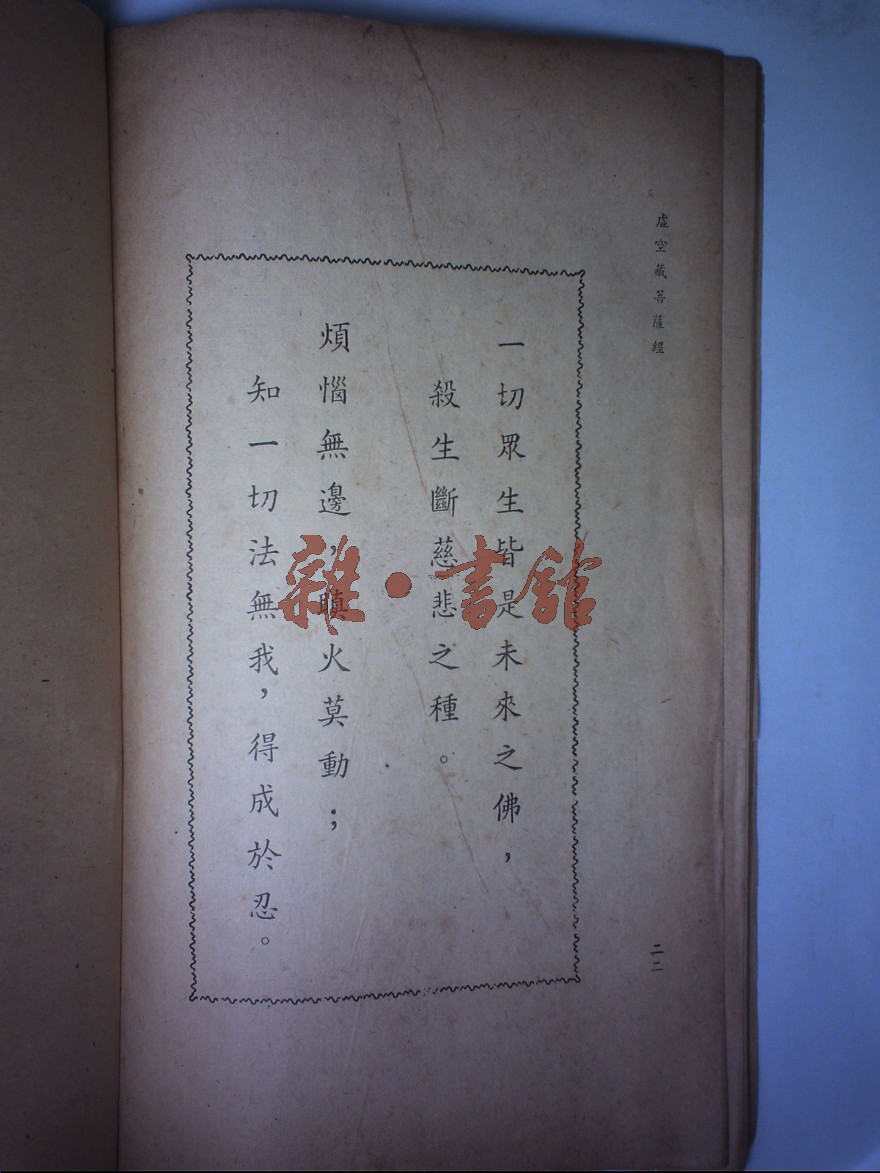 虛空藏菩薩經
一切眾生皆是未來之佛，
殺生斷慈悲之種。
煩惱無邊，瞋火莫動；
知一切法無我，得成於忍。
二二
雜·書館